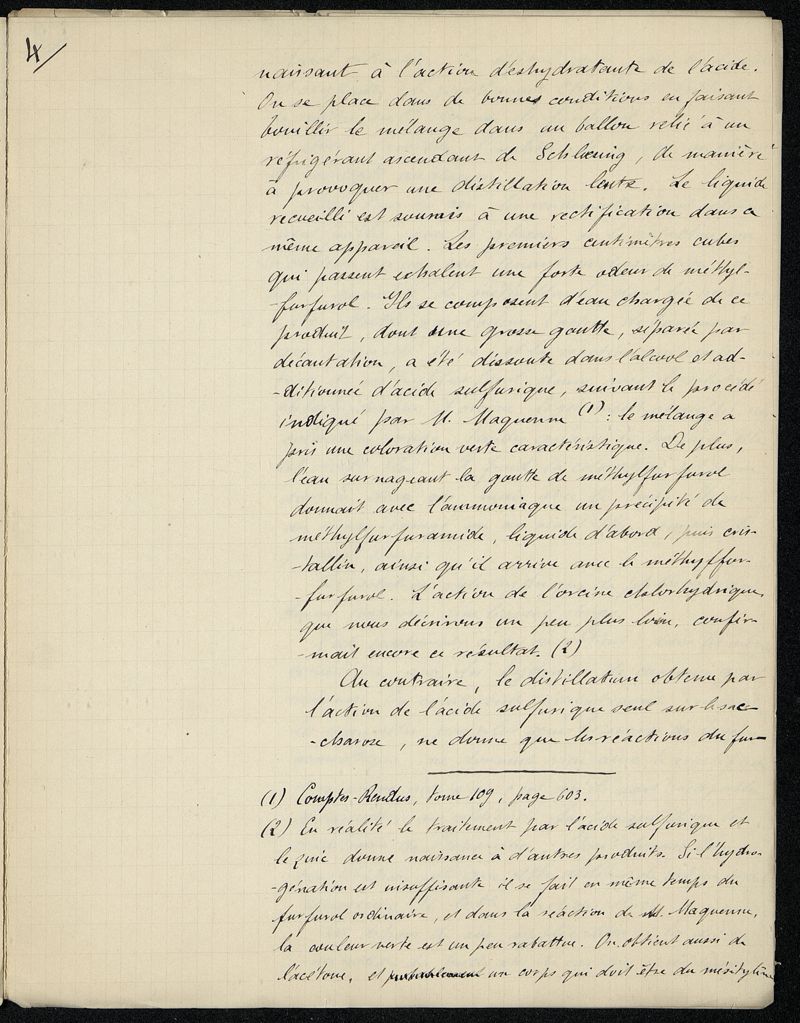 4/
naissant à l'action déshydratante de l'acide.
On se place dans de bonnes conditions en faisant
bouillir le mélange dans un ballon relié à un
réfrigérant ascendant de Schlœsing, de manière
à provoquer une distillation lente. Le liquide
recueilli est soumis à une rectification dans ce
même appareil. Les premiers centimètres cubes
qui passent exhalent une forte odeur de méthyl-
-furfurol. Ils se composent d'eau chargée de ce
produit, dont une grosse goutte, séparée par
décantation, a été dissoute dans l'alcool et ad-
-ditionnée d'acide sulfurique, suivant le procédé
indiqué par M. Maquenne (1) : le mélange a
pris une coloration verte caractéristique. De plus,
l'eau surnageant la goutte de méthylfurfurol
donnait avec l'ammoniaque un précipité de
méthylfurfuramide, liquide d'abord, puis cris-
-tallin, ainsi qu'il arrive avec le méthylfur-
-furfurol. L'action de l'orcine chlorhydrique,
que nous décrirons un peu plus loin, confir-
-mait encore ce résultat. (2)
Au contraire, le distillatum obtenu par
l'action de l'acide sulfurique seul sur le sac-
-charose, ne donne que les réactions du fur-
(1) Comptes-Rendus, tome 109, page 603.
(2) En réalité le traitement par l'acide sulfurique et
le zinc donne naissance à d'autres produits. Si l'hydro-
-génation est insuffisante il se fait en même temps du
furfurol ordinaire, et dans la réaction de M. Maquenne,
la couleur verte est un peu rabattue. On obtient aussi de
l'acétone, et probablement un corps qui doit être du mésitylène